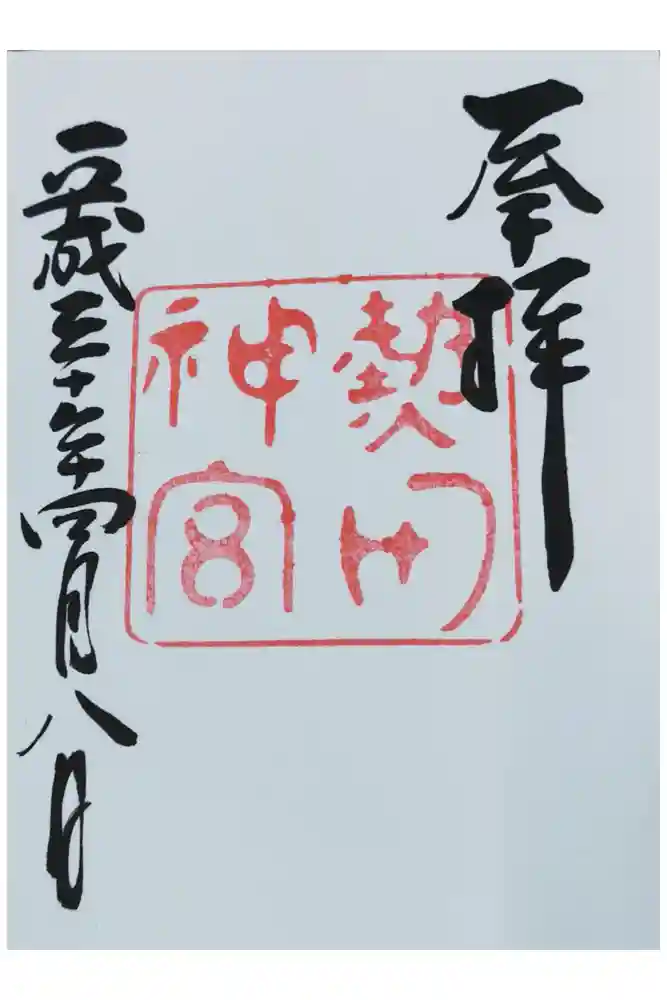 奉拝
熱田
神宮
平成三十年四月八日